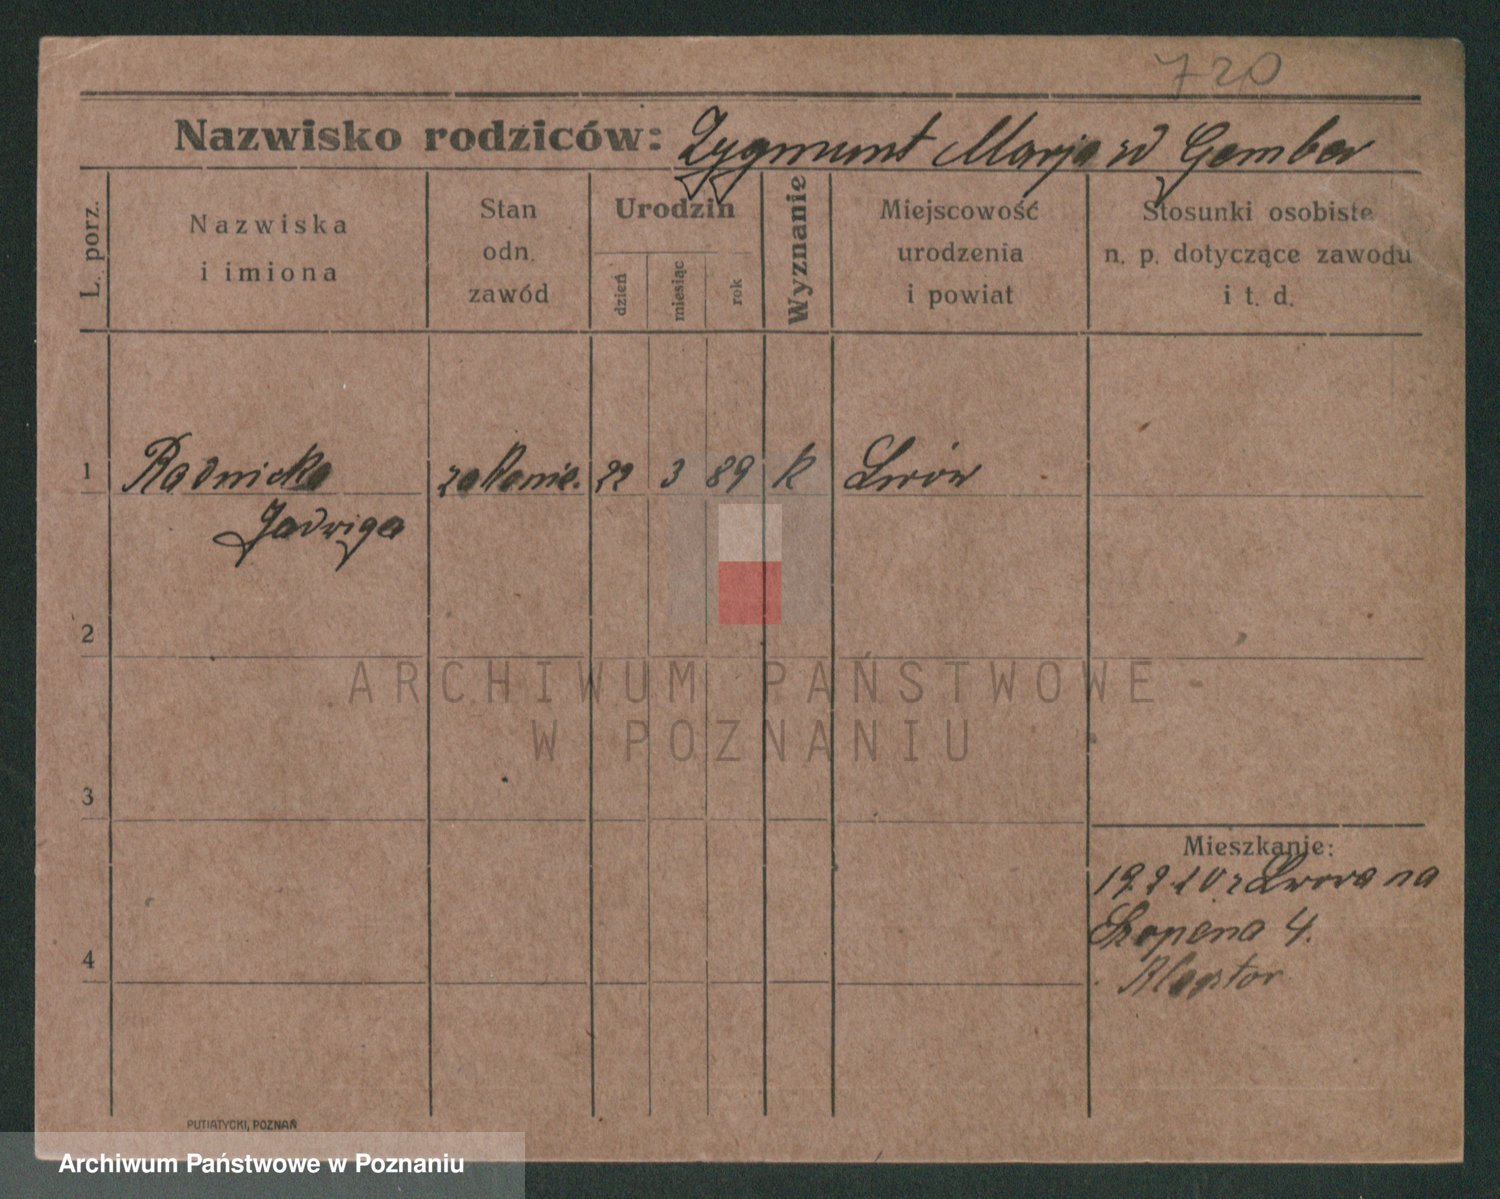 720
Nazwisko rodziców: Zygmunt Marja zd Gember
L. porz.
Nazwiska
i imiona
Stan
odn.
zawód
Urodzin
dzień
miesiąc
rok
Wyznanie
Miejscowość
urodzenia
i powiat
Stosunki osobiste
n. p. dotyczące zawodu
i t. d.
1 Radnicka zakonic. 22 3 89 k Lwów
Jadwiga
2
3
4
ARCHIWUM PAŃSTWOWE
W POZNANIU
Mieszkanie:
z Lwowa na
Szopena 4.
Klasztor
PUTIATYCKI, POZNAŃ
Archiwum Państwowe w Poznaniu